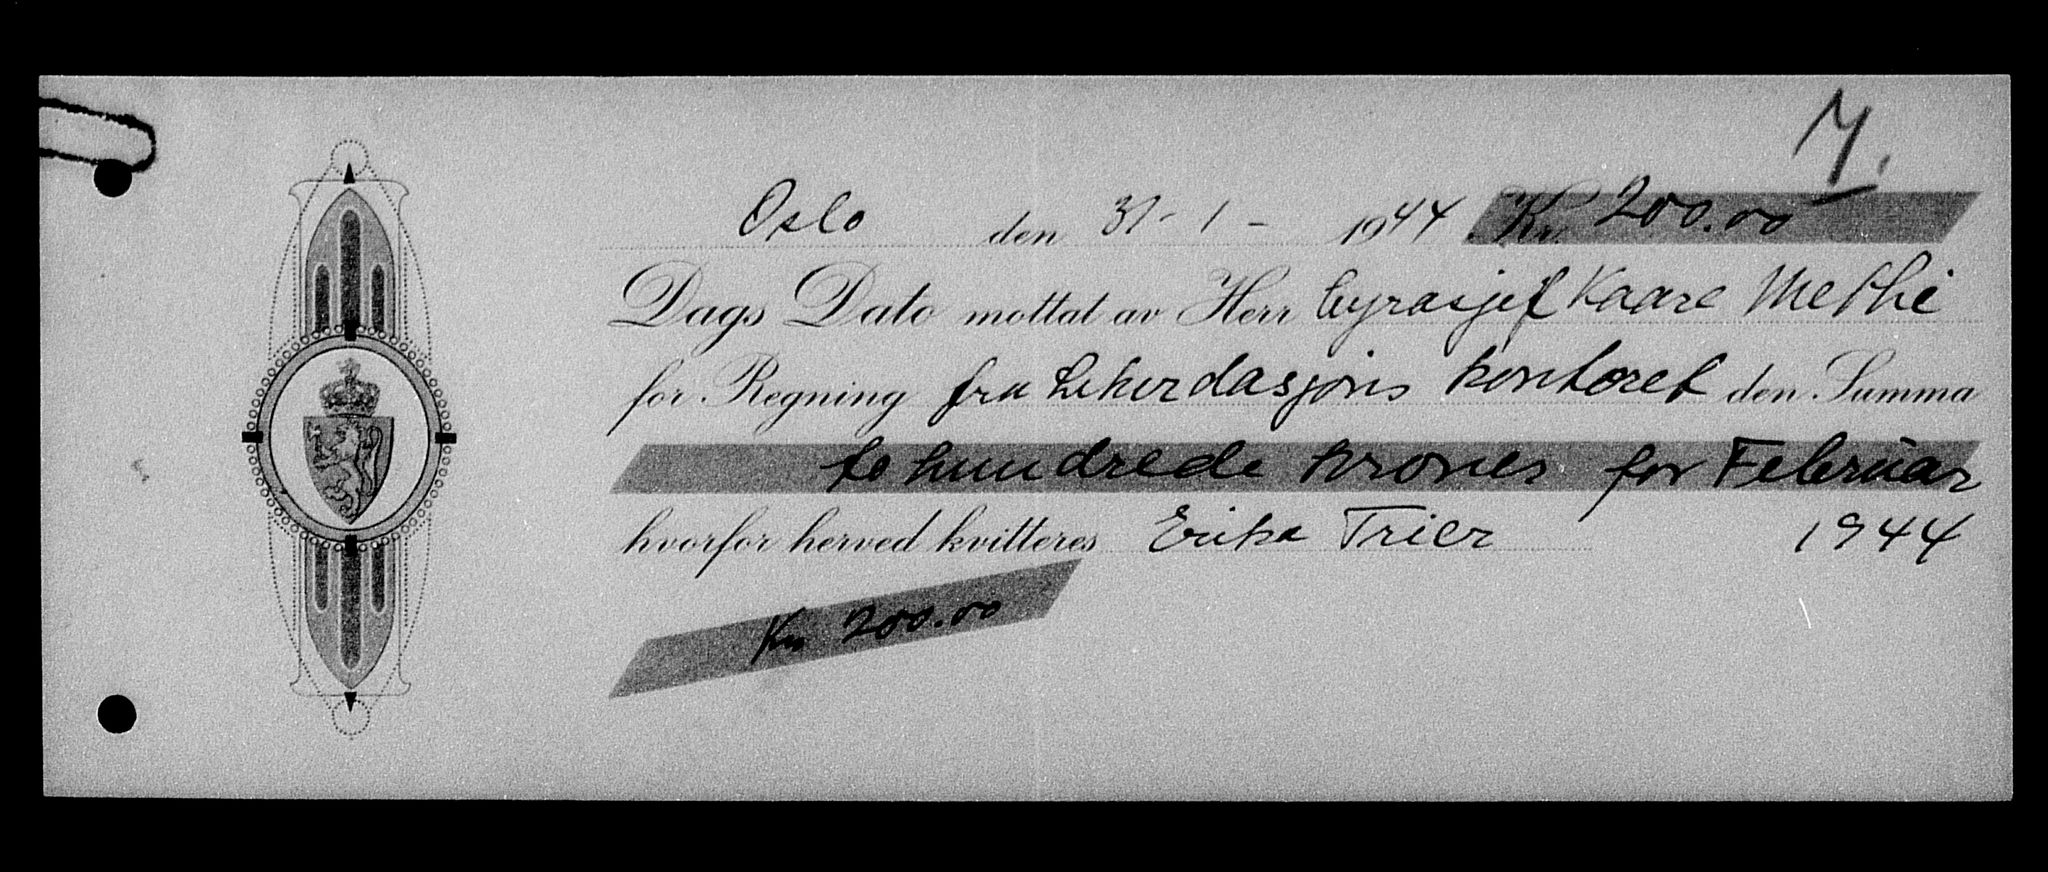 7.
Oslo den 31-1- 1944 Kr. 200.00
Dags Dato mottat av Herr byrasjef Kaare Methi
for Regning fra likvidasjons kontoret den Summa
to hundrede kroner for Februar
hvorfor herved kvitteres Erika Trier 1944
Kr 200.00